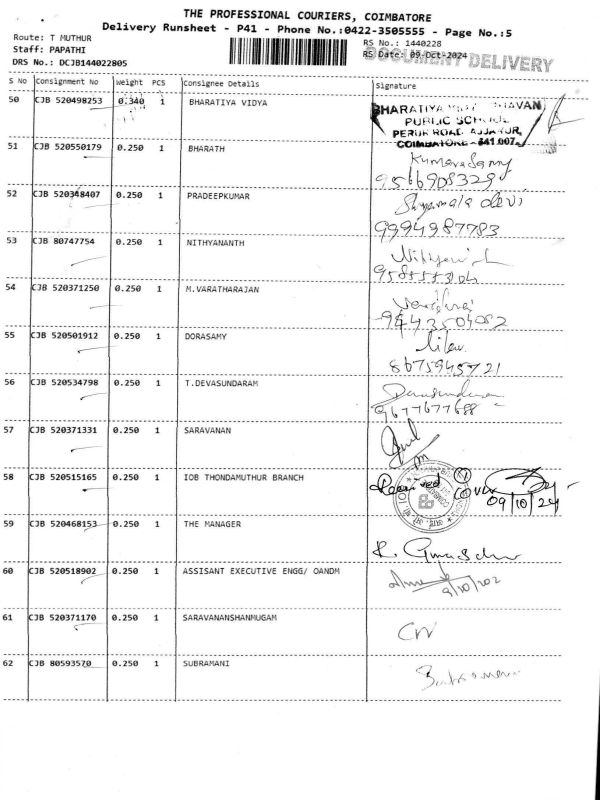 THE PROFESSIONAL COURIERS, COIMBATORE
Delivery Runsheet - P41 - Phone No.:0422-3505555 - Page No.:5
Route: T MUTHUR
RS No.: 1440228
Staff: PAPATHI
RS Date: 09-Oct-2024
DOCUMENT DELIVERY
DRS No.: DCJB144022805
S No Consignment No Weight PCS Consignee Details Signature
50 CJB 520498253 0.340 1 BHARATIYA VIDYA
BHARATIYA BHAVAN
PUBLIC SCHOOL
PERUR ROAD, AJJANUR,
COIMBATORE - 641 007
51 CJB 520550179 0.250 1 BHARATH
Kumarasamy
9566908329
52 CJB 520348407 0.250 1 PRADEEPKUMAR
Shyamala devi
9994987783
53 CJB 80747754 0.250 1 NITHYANANTH
54 CJB 520371250 0.250 1 M.VARATHARAJAN
55 CJB 520501912 0.250 1 DORASAMY
8675945721
56 CJB 520534798 0.250 1 T.DEVASUNDARAM
9677677688
57 CJB 520371331 0.250 1 SARAVANAN
58 CJB 520515165 0.250 1 IOB THONDAMUTHUR BRANCH
Received cover
09/10/24
59 CJB 520468153 0.250 1 THE MANAGER
60 CJB 520518902 0.250 1 ASSISANT EXECUTIVE ENGG/ OANDM
61 CJB 520371170 0.250 1 SARAVANANSHANMUGAM
62 CJB 80593570 0.250 1 SUBRAMANI